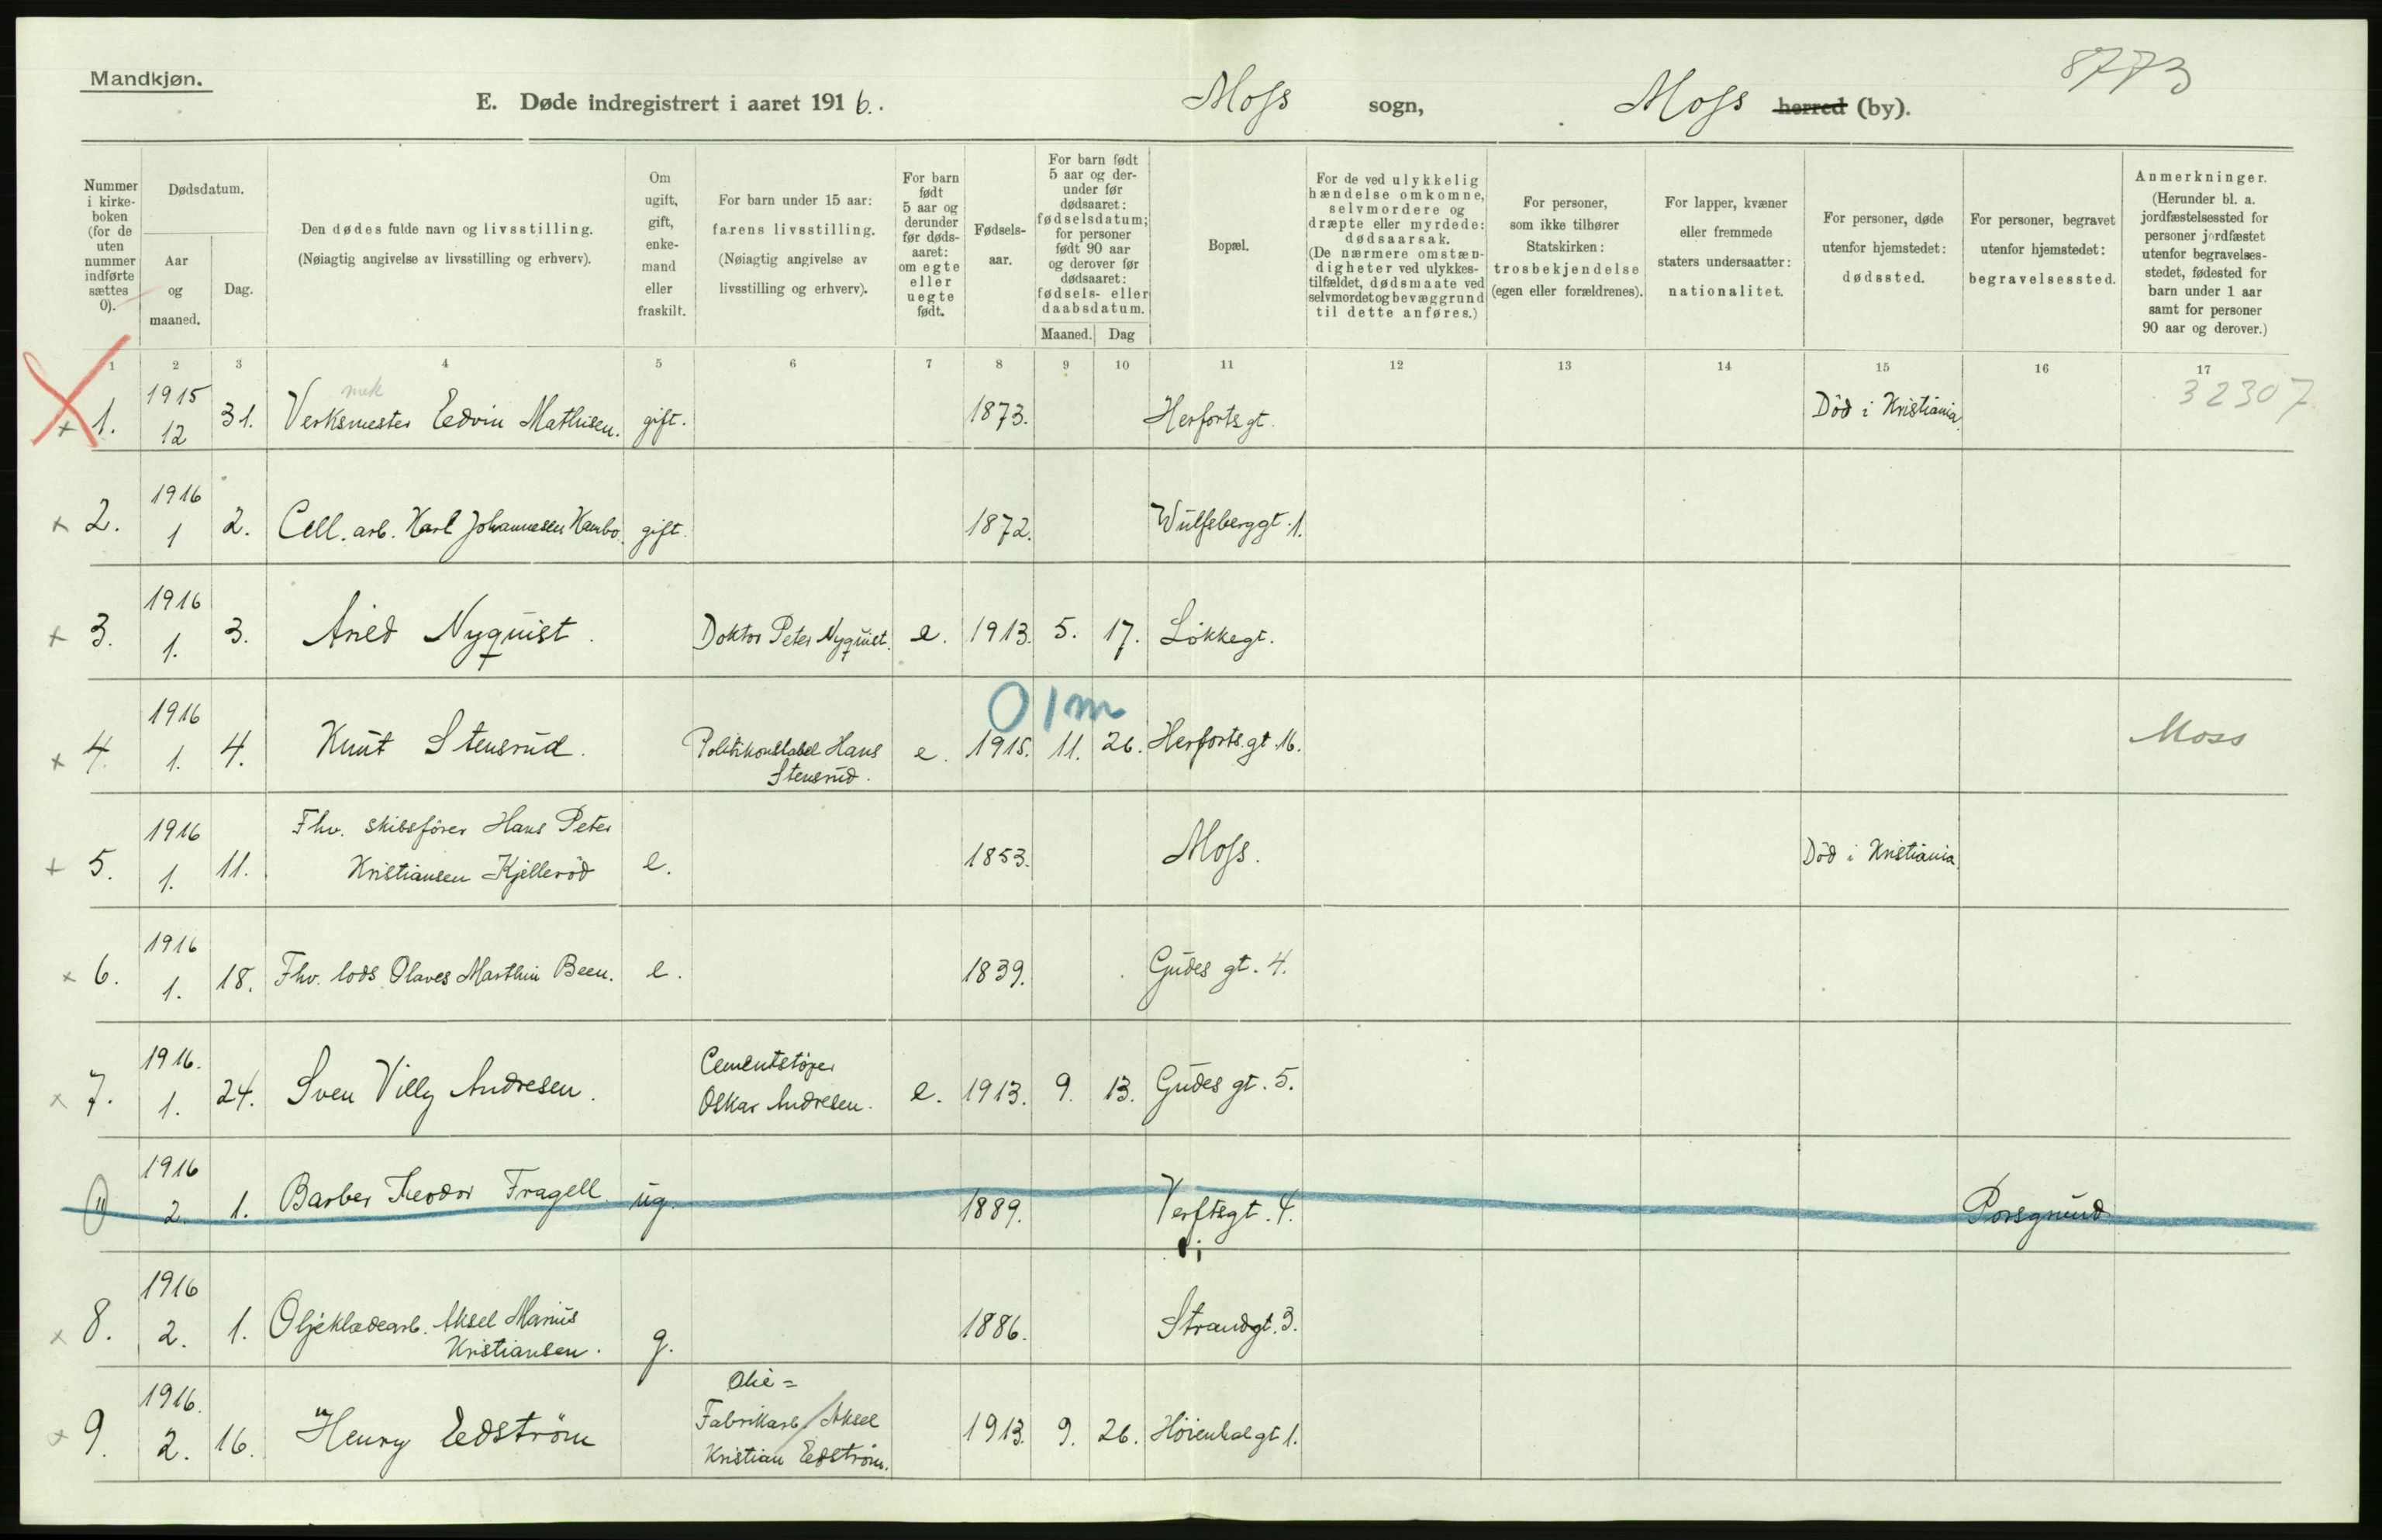 Mandkjøn.
8773
E. Døde indregistrert i aaret 1916. Moss sogn, Moss herred (by).
Nummer i kirkeboken (for de uten nummer indførte sættes 0).
Dødsdatum.
Aar og maaned.
Dag.
Den dødes fulde navn og livsstilling. (Nøiagtig angivelse av livsstilling og erhverv).
Om ugift, gift, enkemand eller fraskilt.
For barn under 15 aar: farens livsstilling. (Nøiagtig angivelse av livsstilling og erhverv).
For barn født 5 aar og derunder før dødsaaret: om egte eller uegte født.
Fødselsaar.
For barn født 5 aar og derunder før dødsaaret: fødselsdatum; for personer født 90 aar og derover før dødsaaret: fødsels- eller daabsdatum.
Maaned. Dag
Bopæl.
For de ved ulykkelig hændelse omkomne, selvmordere og dræpte eller myrdede: dødsaarsak. (De nærmere omstændigheter ved ulykkestilfældet, dødsmaate ved selvmordet og bevæggrund til dette anføres.)
For personer, som ikke tilhører Statskirken: trosbekjendelse (egen eller forældrenes).
For lapper, kvæner eller fremmede staters undersaatter: nationalitet.
For personer, døde utenfor hjemstedet: dødssted.
For personer, begravet utenfor hjemstedet: begravelsessted.
Anmerkninger. (Herunder bl. a. jordfæstelsessted for personer jordfæstet utenfor begravelsesstedet, fødested for barn under 1 aar samt for personer 90 aar og derover.)
1 2 3 4 5 6 7 8 9 10 11 12 13 14 15 16 17
× 1. 1915 12 31. mek Verksmester Edvin Mathisen. gift. 1873. Herforts gt. Død i Kristiania. 32307
× 2. 1916 1 2. Cell. arb. Karl Johannesen Kambo. gift. 1872. Wulfsberggt. 1.
× 3. 1916 1. 3. Arild Nyquist. Doktor Peter Nyquist. e. 1913. 5. 17. Løkkegt.
0 1 m
× 4. 1916 1. 4. Knut Stensrud. Politikonstabel Hans Stensrud. e. 1915. 11. 26. Herforts. gt. 16. Moss
× 5. 1916 1. 11. Fhv. skibsfører Hans Peter Kristiansen Kjellerød e. 1853. Moss. Død i Kristiania.
× 6. 1916 1. 18. Fhv. lods Olaves Marthin Been. e. 1839. Gudes gt. 4.
× 7. 1916. 1. 24. Sven Villy Andresen. Cementstøper Oskar Andresen. e. 1913. 9. 13. Gudes gt. 5.
1916 2. 1. Barber Teodor Fragell. ug. 1889. Verftsgt. 4. Porsgrund
× 8. 1916 2. 1. Oljeklædearb. Aksel Marius Kristiansen. g. 1886. Strandgt. 3.
× 9. 1916. 2. 16. Henry Edström Olie= Fabrikarb. Aksel Kristian Edström. 1913. 9. 26. Høienhalgt 1.